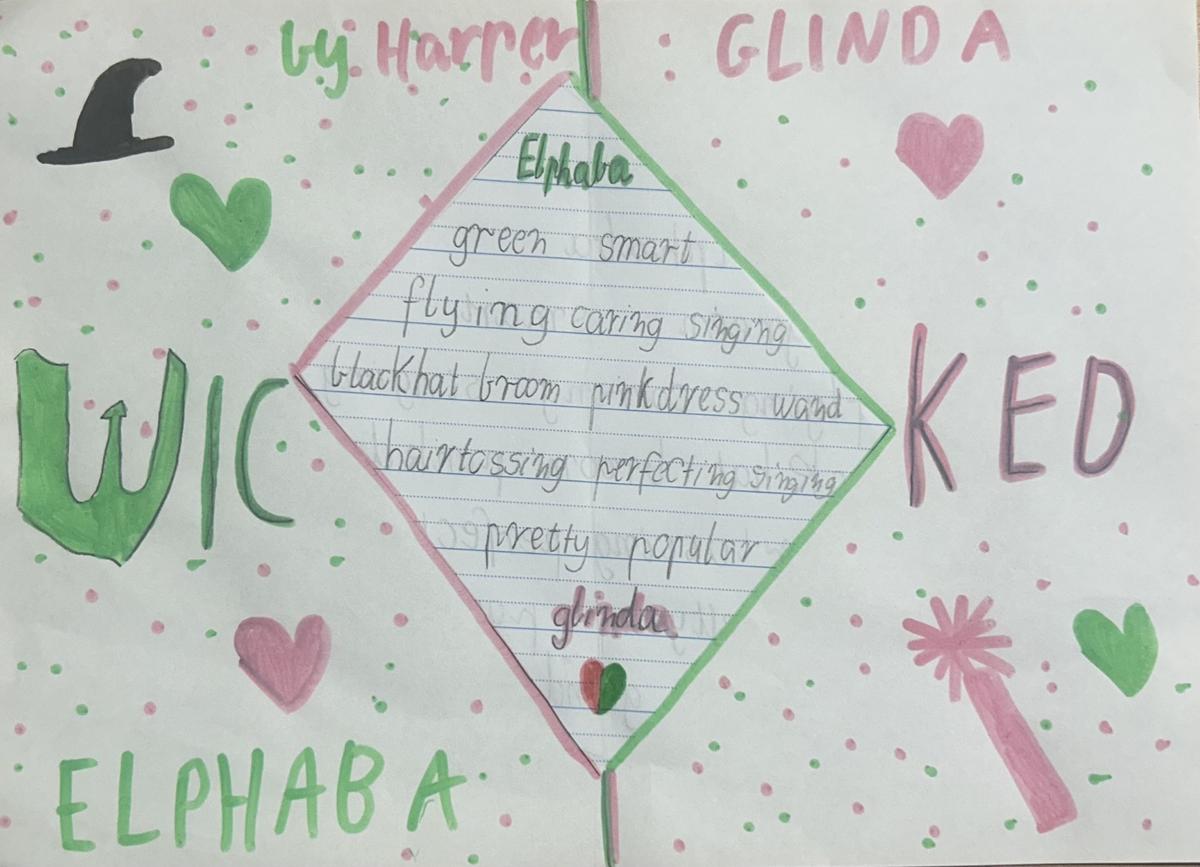 by Harper
GLINDA
Elphaba
green smart
flying caring singing
blackhat broom pinkdress wand
hairtossing perfecting singing
pretty popular
glinda
WICKED
ELPHABA